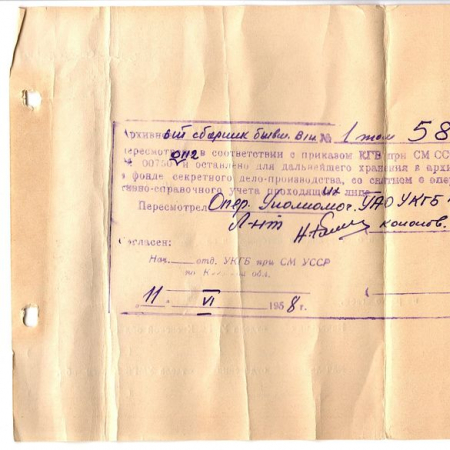 Архивный сборник бывш. Вн. № 1 том 58
пересмотрен в соответствии с приказом КГБ при СМ СС
№ 00750 и оставлено для дальнейшего хранения в архи
в фонде секретного дело-производства, со снятием с опера
тивно-справочного учета проходящих лиц
Пересмотрел Опер. Уполномоч. УАО УКГБ
Л-нт
Согласен:
Нач. отд. УКГБ при СМ УССР
по обл.
11. VI 1958 г.